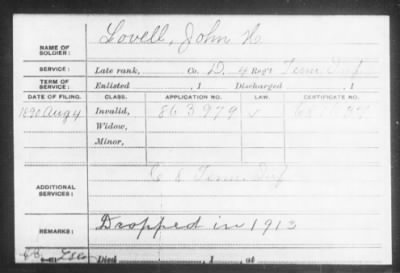 Lovell, John H
NAME OF SOLDIER:
SERVICE: Late rank, Co. D, 4 Reg't Tenn Inf
TERM OF SERVICE: Enlisted , 1 Discharged , 1
DATE OF FILING. CLASS. APPLICATION NO. LAW. CERTIFICATE NO.
1890 Aug 4 Invalid, 863,979
Widow,
Minor,
C 8 Tenn Inf
ADDITIONAL SERVICES:
REMARKS: Dropped in 1913
Died , 1 , at